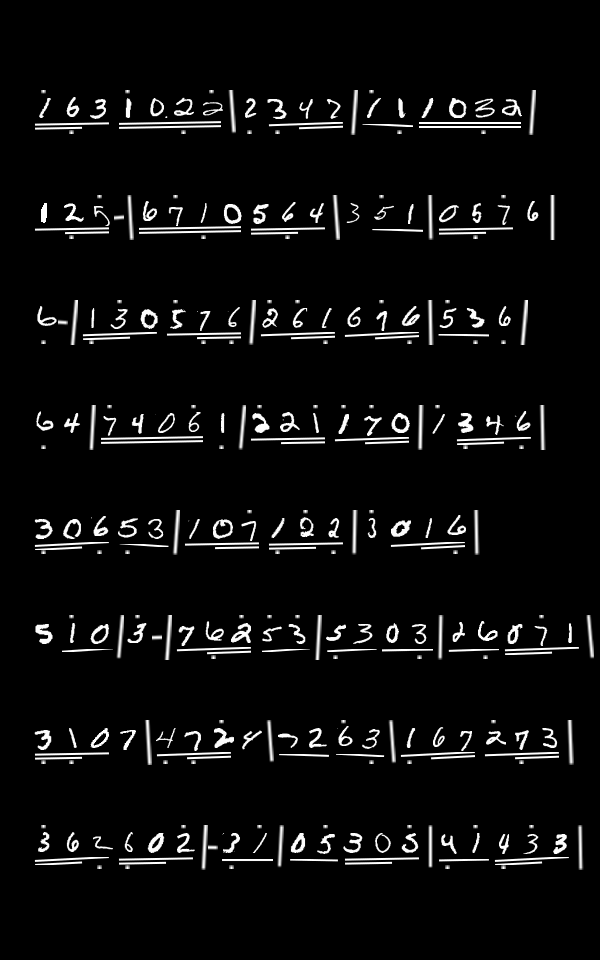 1 6 3 1 0 . 2 2 | 2 3 4 7 | 1 1 1 0 3 2 |
1 2 5 - | 6 7 1 0 5 6 4 | 3 5 1 | 0 5 7 6 |
6 - | 1 3 0 5 7 6 | 2 6 1 6 7 6 | 5 3 6 |
6 4 | 7 4 0 6 1 | 2 2 1 1 7 0 | 1 3 4 6 |
3 0 6 5 3 | 1 0 7 1 2 2 | 3 0 1 6 |
5 1 0 | 3 - | 7 6 2 5 3 | 5 3 0 3 | 2 6 0 7 1 |
3 1 0 7 | 4 7 2 4 | 7 2 6 3 | 1 6 7 2 7 3 |
3 6 2 6 0 2 | - 3 1 | 0 5 3 0 5 | 4 1 4 3 3 |